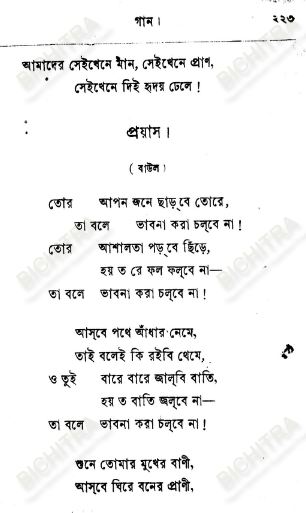 গান। ২২৩
আমাদের সেইখেনে মান, সেইখেনে প্রাণ,
সেইখেনে দিই হৃদয় ঢেলে!
প্রয়াস।
(বাউল)
তোর আপন জনে ছাড়্‌বে তোরে,
তা বলে ভাবনা করা চল্‌বে না!
তোর আশালতা পড়্‌বে ছিঁড়ে,
হয় ত রে ফল ফল্‌বে না—
তা বলে ভাবনা করা চল্‌বে না!
আস্‌বে পথে আঁধার নেমে,
তাই বলেই কি রইবি থেমে,
ও তুই বারে বারে জাল্‌বি বাতি,
হয় ত বাতি জ্বল্‌বে না—
তা বলে ভাবনা করা চল্‌বে না!
শুনে তোমার মুখের বাণী,
আস্‌বে ঘিরে বনের প্রাণী,
BICHITRA
BICHITRA
BICHITRA
BICHITRA
BICHITRA
BICHITRA